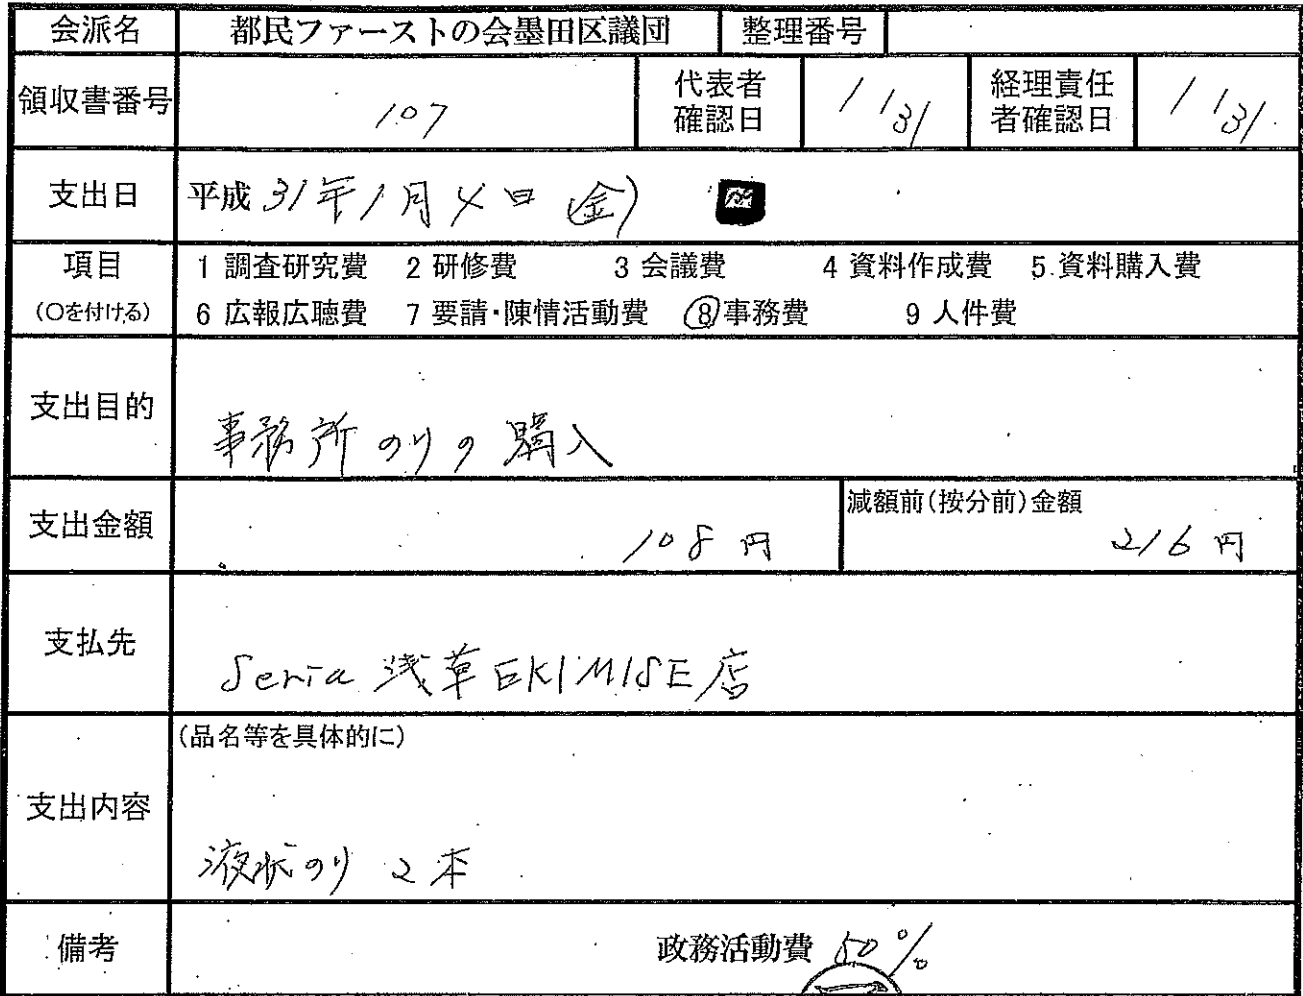 会派名 都民ファーストの会墨田区議団 整理番号
領収書番号 107 代表者確認日 1/31 経理責任者確認日 1/31
支出日 平成31年1月4日(金)
項目 1 調査研究費 2 研修費 3 会議費 4 資料作成費 5 資料購入費
(○を付ける) 6 広報広聴費 7 要請・陳情活動費 ⑧事務費 9 人件費
支出目的 事務所のりの購入
支出金額 108円 減額前(按分前)金額 216円
支払先 Seria 浅草EKIMISE店
(品名等を具体的に)
支出内容 液状のり 2本
備考 政務活動費 50%